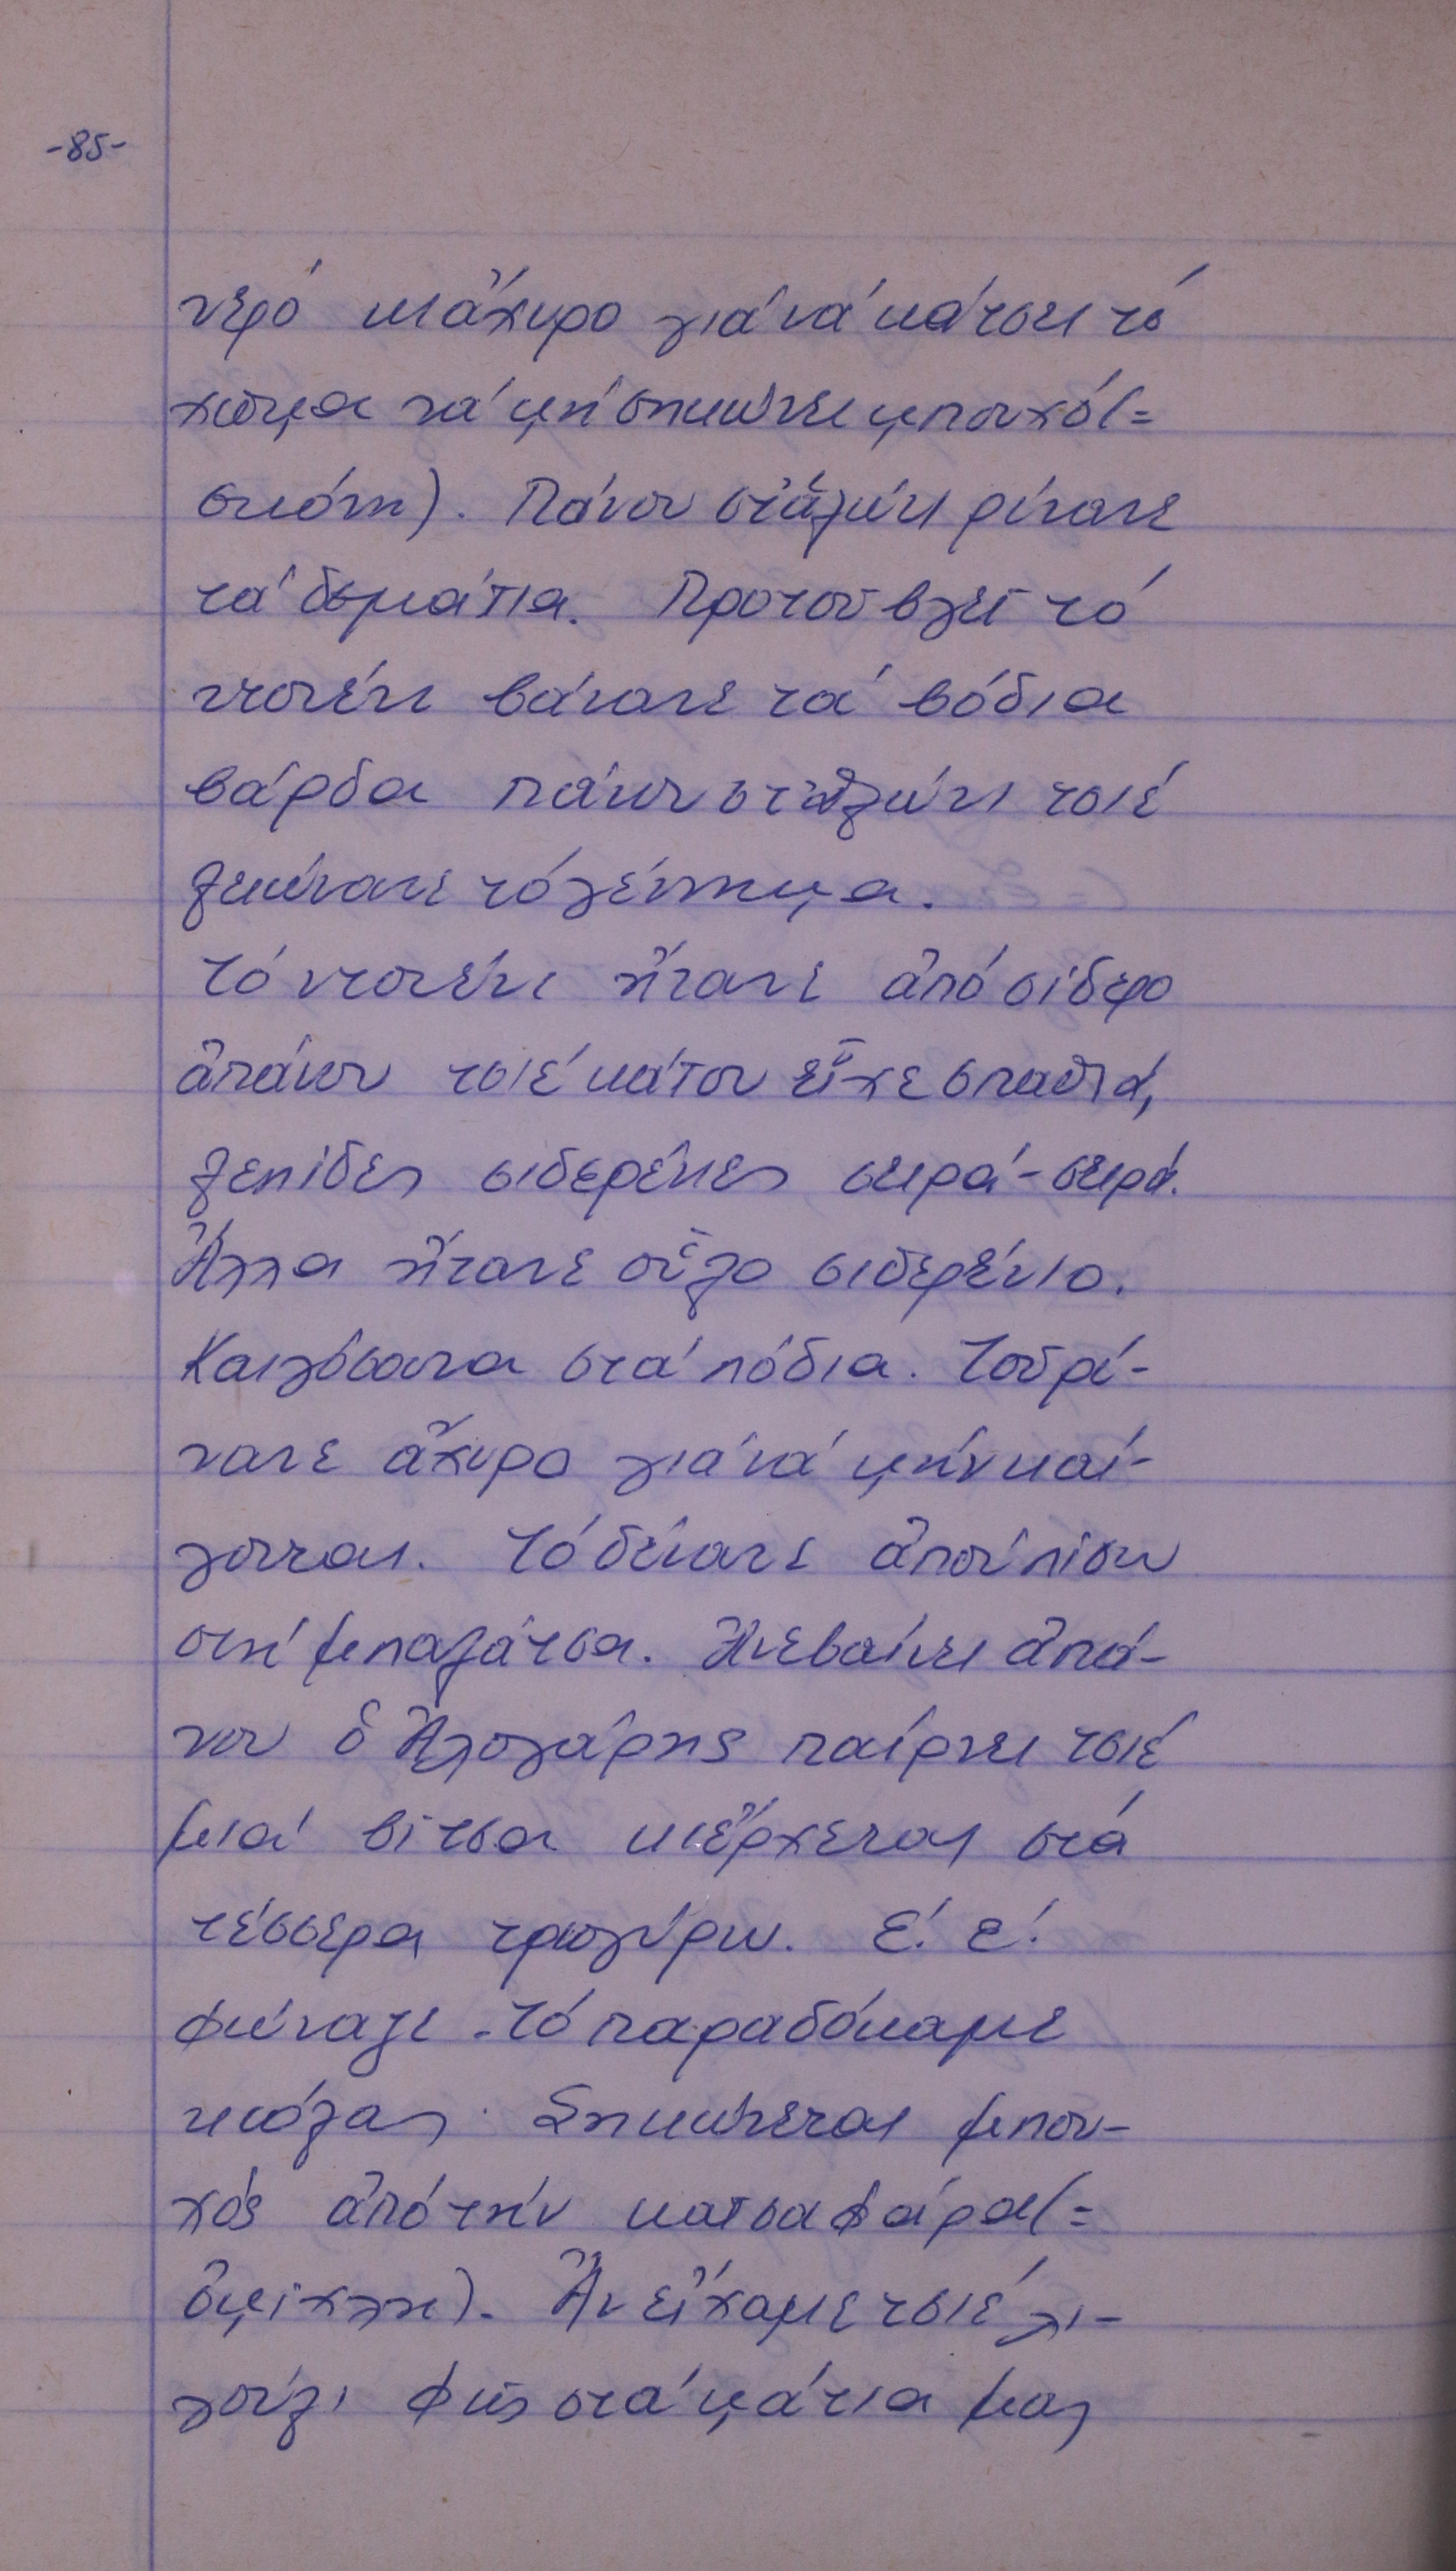 -85-
νερό κιἄχυρο γιά νά κάτσει τό
χῶμα νά μή σηκώνει μπουχό(=
σκόνη). Πάνου στἀλώνι ρίνανε
τά δεμάτια. Προτοῦ βγεῖ τό
ντουένι βάνανε τά βόδια
βάρδα πάνου στἀλώνι τσιέ
ζευώνανε τό γέννημα.
Τό ντουένι ἤτανε ἀπό σίδερο
ἀπάνου τσιέ κάτου εἶχε σπαθιά,
λεπίδες σιδερένιες σειρά-σειρά.
Ἄλλα ἤτανε οὗλο σιδερένιο.
Καιγόσαντα στά πόδια. Τοῦ ρί-
νανε ἄχυρο γιά νά μήν καί-
γονται. Τό δένανε ἀπού πίσω
στή μπαλάτσα. Ἀνεβαίνει ἀπά-
νου ὁ Ἀλογάρης παίρνει τσιέ
μιά βίτσα κιἔρχεται στά
τέσσερα τρογύρω. Ε! ε!
φώναζε. Τό παραδόκαμε
κιόλας. Σηκώνεται μπου-
χός ἀπό τήν κατσαφάρα(=
ὀμίχλη). Ἄν εἴχαμε τσιέ λι-
γούλι φῶς στά μάτια μας